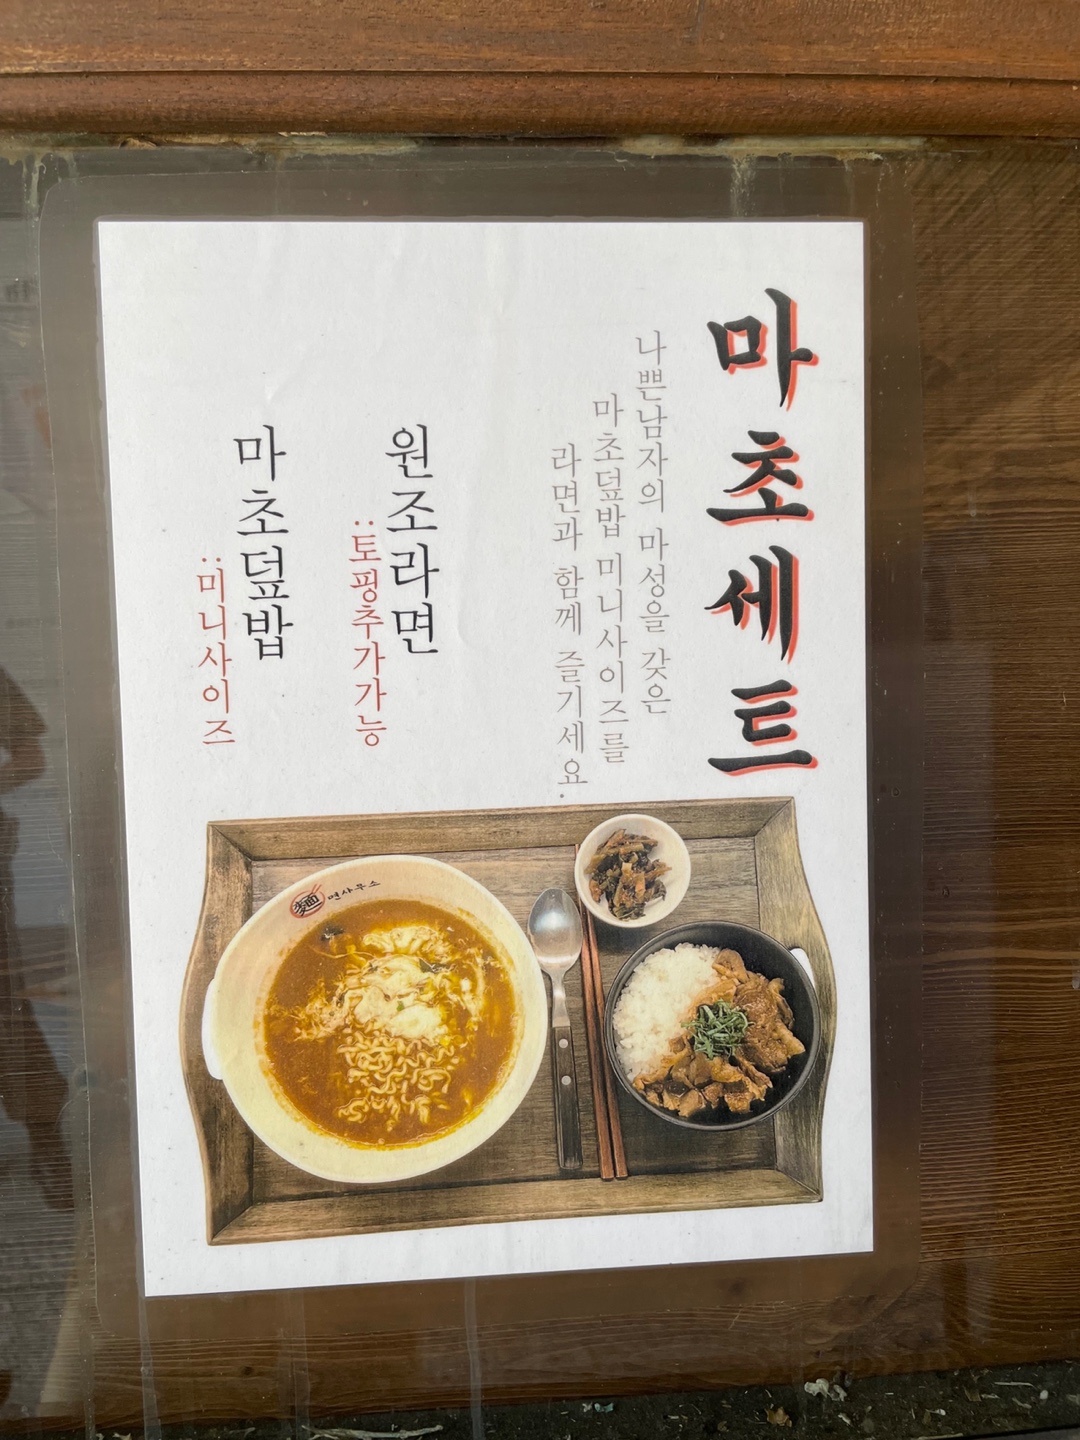 마초세트
나쁜남자의 마성을 갖은
마초덮밥 미니사이즈를
라면과 함께 즐기세요.
원조라면
:토핑추가가능
마초덮밥
:미니사이즈
麵 면사무소